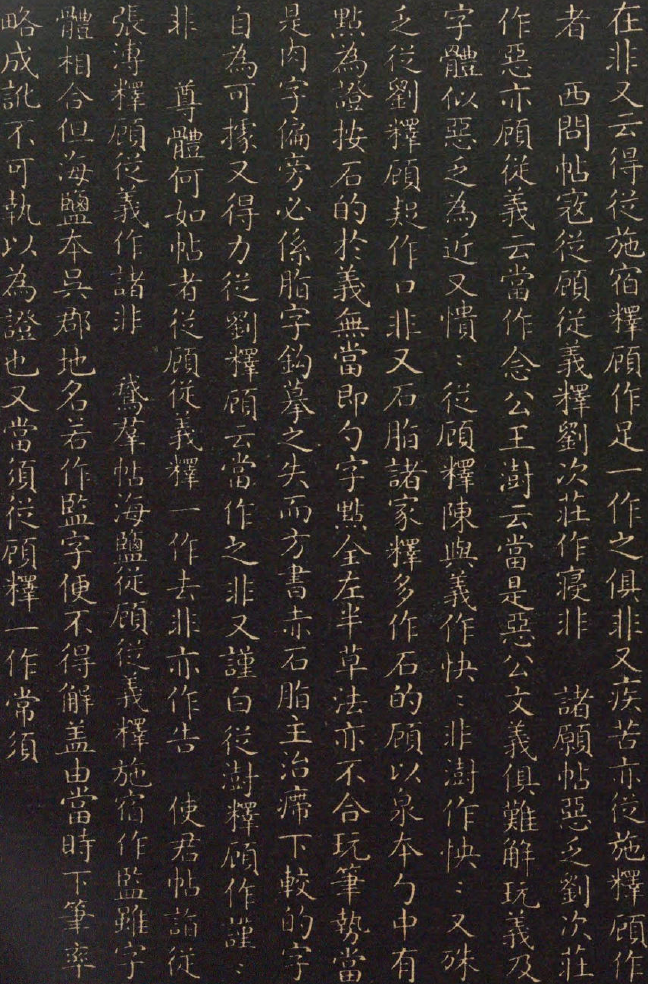 在非又云得從施宿釋顧作足一作之俱非又疾苦亦從施釋顧作
者　西問帖寇從顧從義釋劉次莊作寢非　諸願帖惡乏劉次莊
作惡亦顧從義云當作念公王澍云當是惡公文義俱難解玩義及
字體似惡乏為近又憒〻從顧釋陳與義作快〻非澍作怏〻又殊
乏從劉釋顧起作口非又石脂諸家釋多作石的顧以泉本勺中有
點為證按石的於義無當即勺字點全左半草法亦不合玩筆勢當
是肉字偏旁必係脂字鈎摹之失而方書赤石脂主治癤下較的字
自為可據又得力從劉釋顧云當作之非又謹白從澍釋顧作謹〻
非　尊體何如帖者從顧從義釋一作去非亦作告　使君帖諧從
張溥釋顧從義作諸非　鵞羣帖海鹽從顧從義釋施宿作監雖字
體相合但海鹽本吳郡地名若作監字便不得解盖由當時下筆率
略成訛不可執以為證也又當須從顧釋一作常須